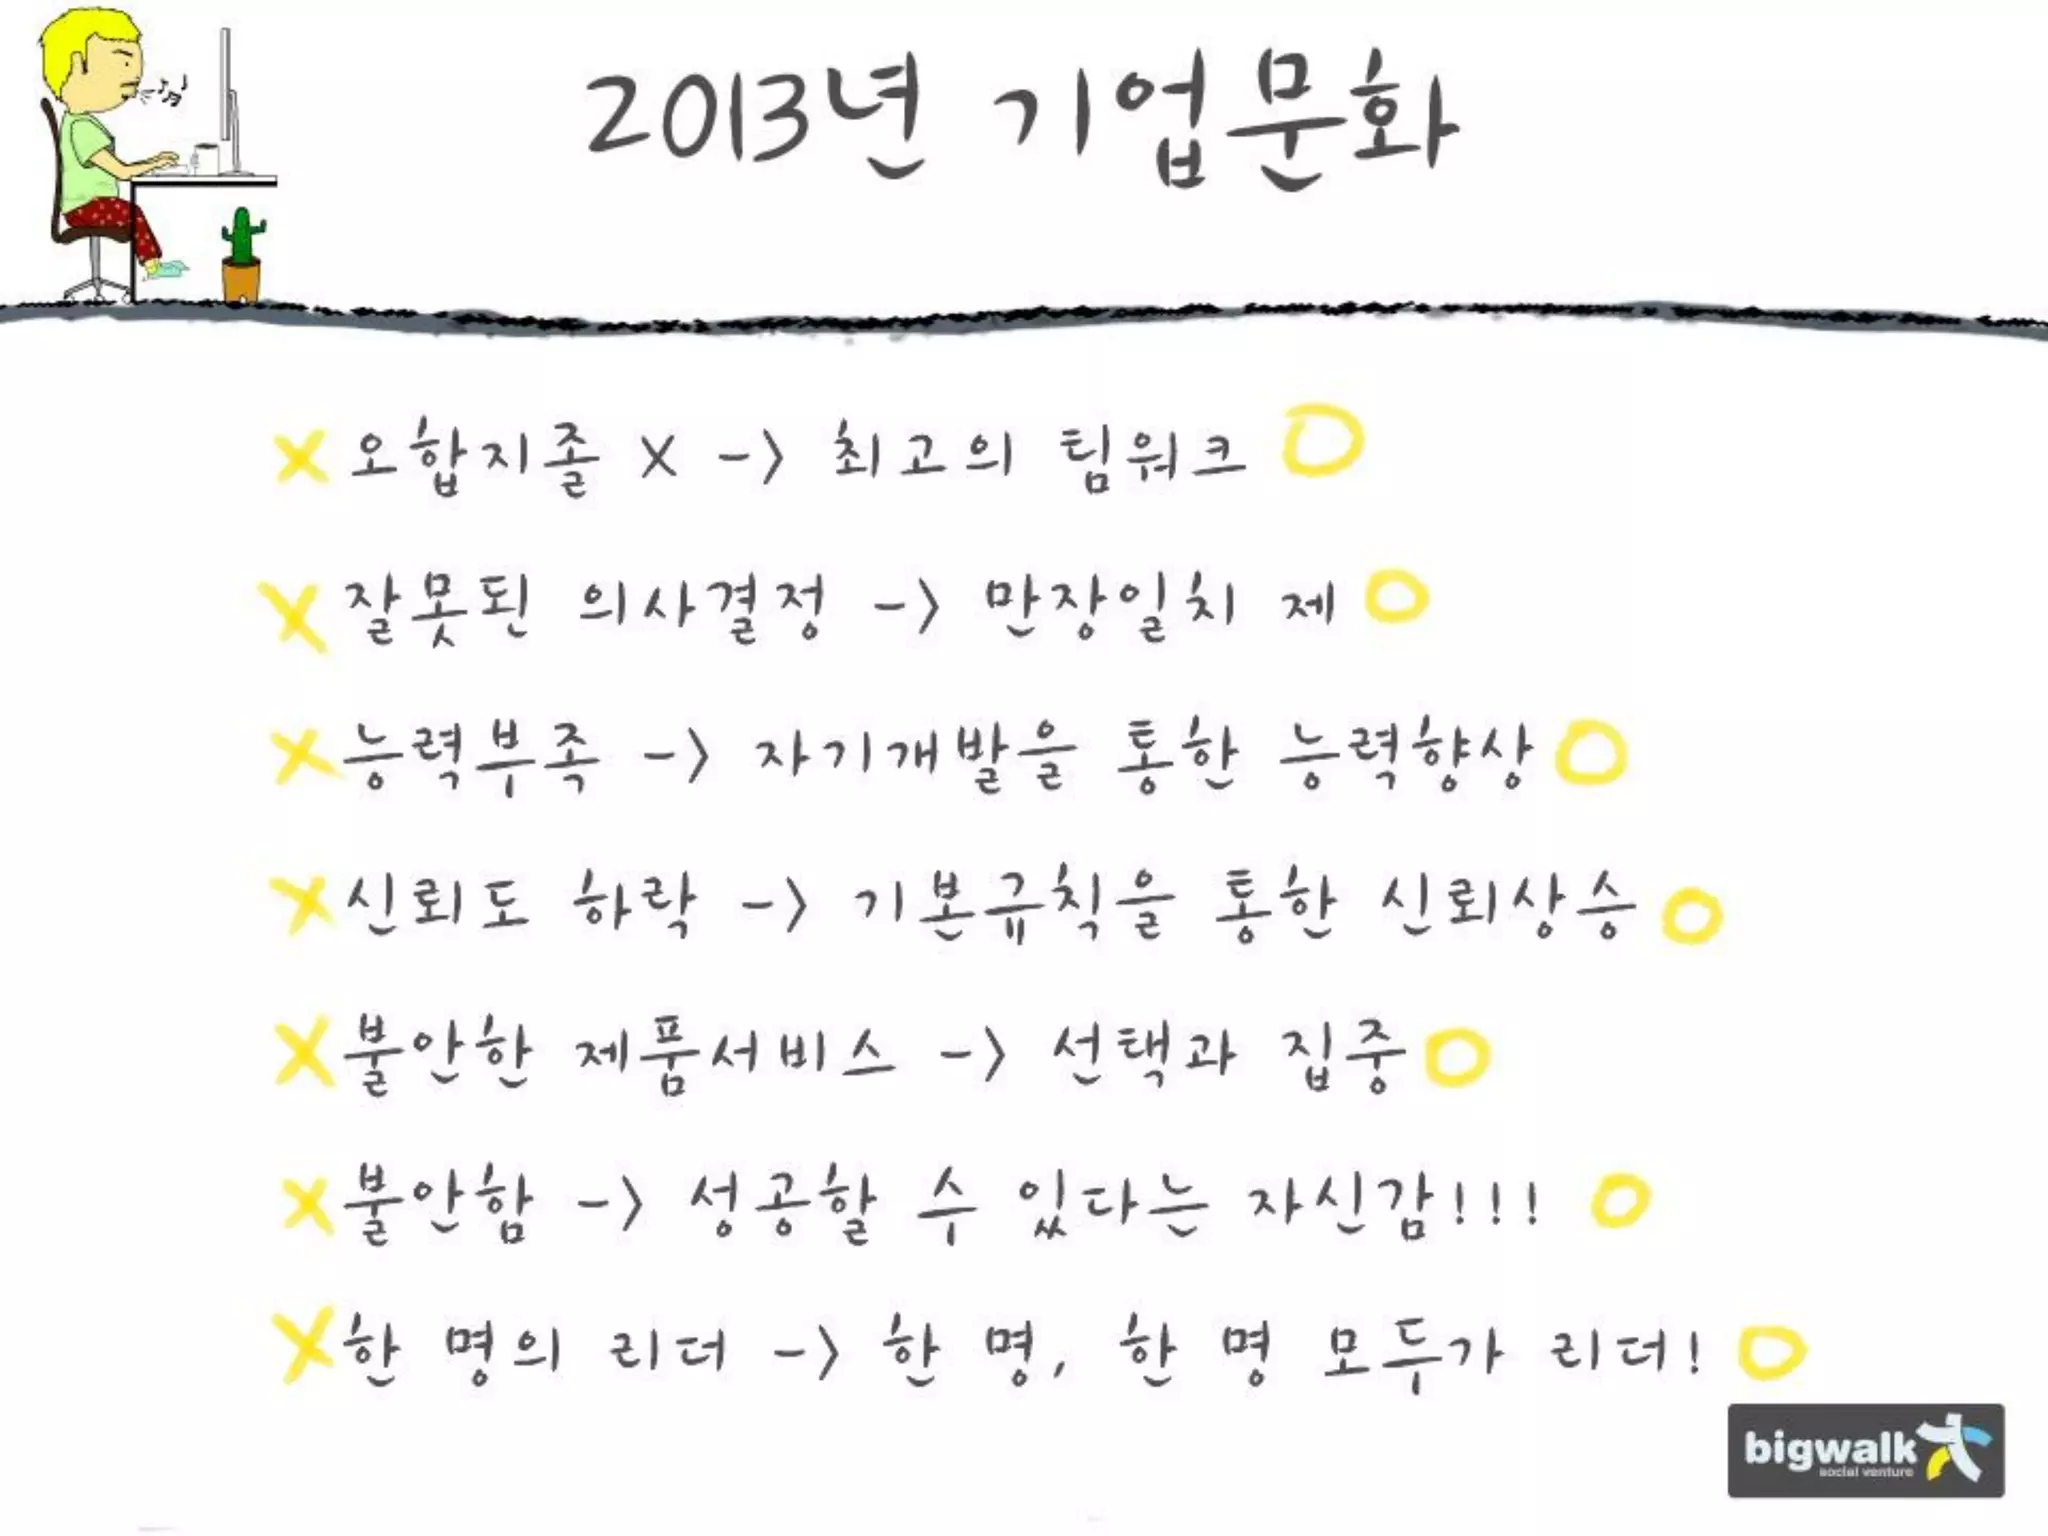 2013년 기업문화
X 오합지졸 X -> 최고의 팀워크 O
X 잘못된 의사결정 -> 만장일치 제 O
X 능력부족 -> 자기개발을 통한 능력향상 O
X 신뢰도 하락 -> 기본규칙을 통한 신뢰상승 O
X 불안한 제품서비스 -> 선택과 집중 O
X 불안함 -> 성공할 수 있다는 자신감!!! O
X 한 명의 리더 -> 한 명, 한 명 모두가 리더! O
bigwalk
social venture